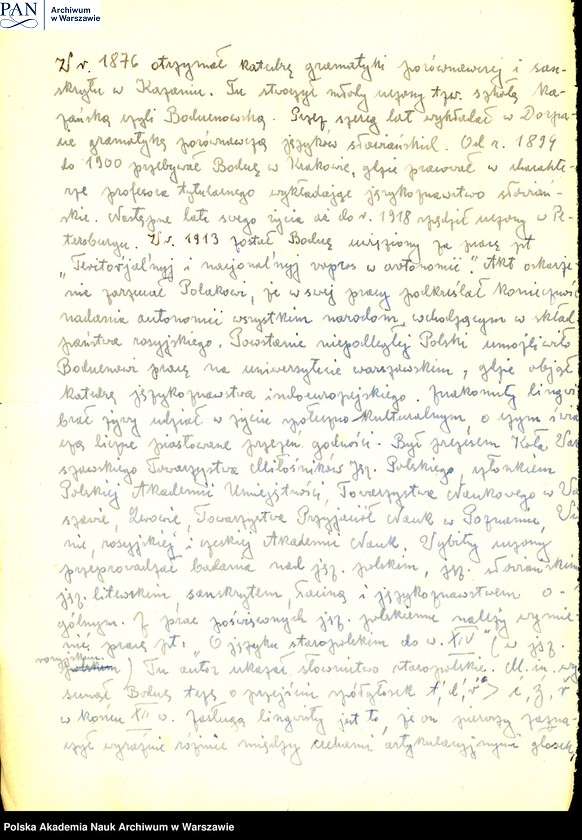 PAN
Archiwum
w Warszawie
W r. 1876 otrzymał katedrę gramatyki porównawczej i san-
skrytu w Kazaniu. Tu stworzył młody uczony tzw. szkołę ka-
zańską czyli Boduenowską. Przez szereg lat wykładał w Dorpa-
cie gramatykę porównawczą języków słowiańskich. Od r. 1894
do 1900 przebywał Boduę w Krakowie, gdzie pracował w charakte-
rze profesora tytularnego wykładając językoznawstwo słowiań-
skie. Następne lata swego życia aż do r. 1918 spędził uczony w Pe-
tersburgu. W r. 1913 został Boduę uwięziony za pracę pt
„Teritorjal'nyj i nacjonal'nyj vopros w avtonomii". Akt oskarże-
nia zarzucał Polakowi, że w swej pracy podkreślał konieczność
nadania autonomii wszystkim narodom, wchodzącym w skład
państwa rosyjskiego. Powstanie niepodległej Polski umożliwiło
Boduenowi pracę na uniwersytecie warszawskim, gdzie objął
katedrę językoznawstwa indoeuropejskiego. Znakomity lingwi
brał żywy udział w życiu społeczno-kulturalnym, o czym świa
czą liczne piastowane przezeń godności. Był prezesem Koła War
szawskiego Towarzystwa Miłośników Jęz. Polskiego, członkiem
Polskiej Akademii Umiejętności, Towarzystwa Naukowego w Wa
szawie, Lwowie, Towarzystwa Przyjaciół Nauk w Poznaniu, Wil
nie, rosyjskiej i czeskiej Akademii Nauk. Wybitny uczony
przeprowadzał badania nad jęz. polskim, jęz. słowiańskim
jęz. litewskim, sanskrytem, łaciną i językoznawstwem o-
gólnym. Z prac poświęconych jęz. polskiemu należy wymie
nić pracę pt. „O języku staropolskim do w. XIV" (w jęz.
rosyjskim) Tu autor ukazał słownictwo staropolskie. M. in. wy
sunął Boduę tezę o przejściu spółgłosek t', d', r' > c, ʒ, ř
w końcu XII w. Zasługą lingwisty jest to, że on pierwszy zazna-
czył wyraźnie różnice między cechami artykulacyjnymi głosek,
Polska Akademia Nauk Archiwum w Warszawie